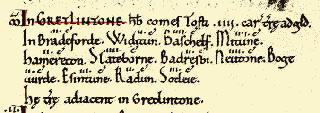 In GRETLINTONE. hb comes Tosti .iiii. car tre ad gld.
In Bradeforde. Widitun. Baschelf. Mitune.
Hamereton. Slateborne. Badresbi. Neutone. Boge
uurde. Esintune. Radun. Sotleie.
He tre adiacent in Gretlintone.